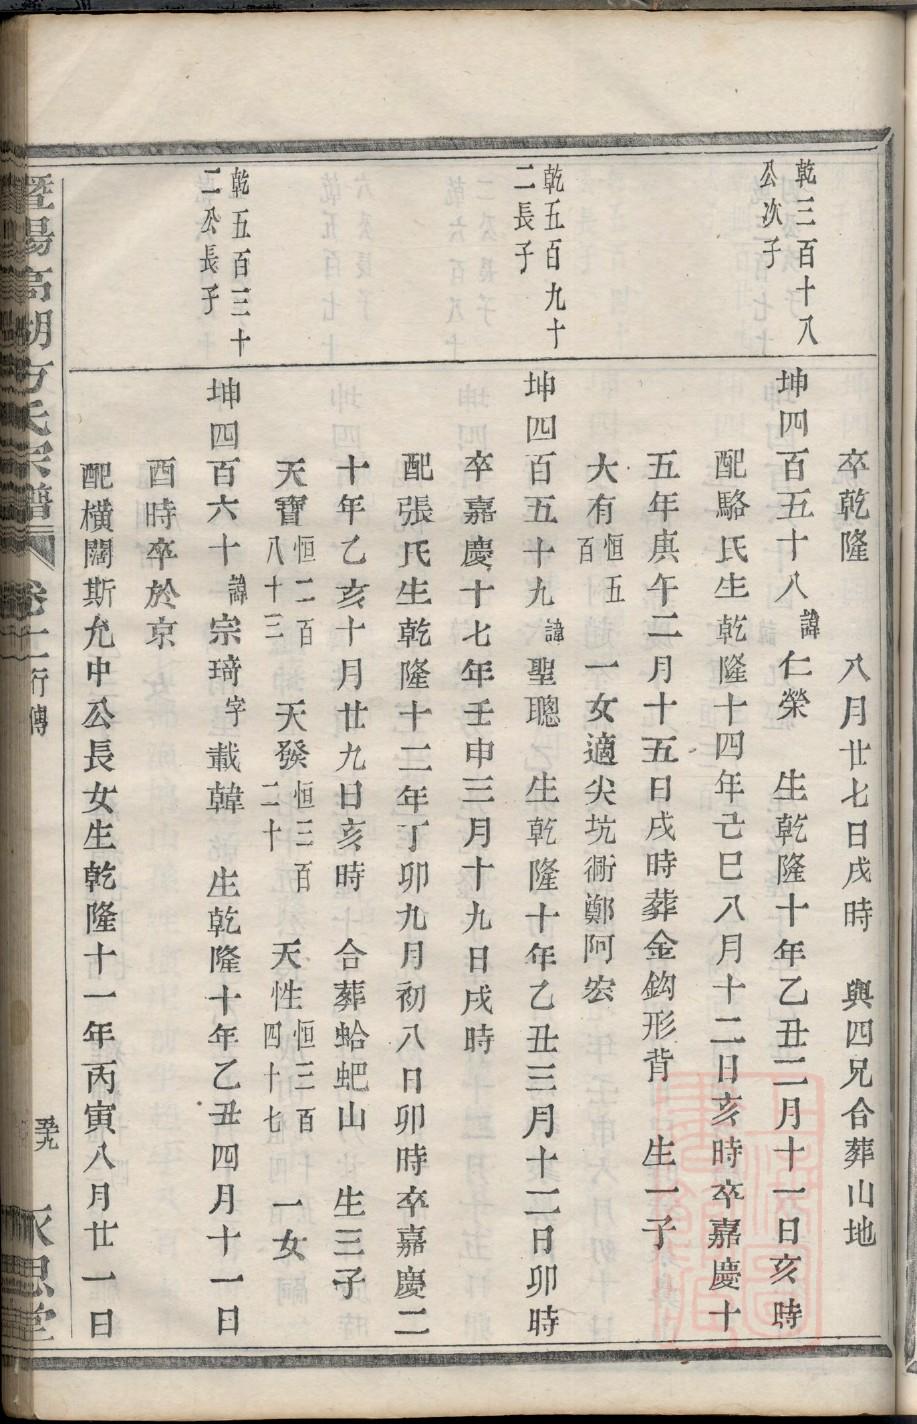 卒乾隆 八月廿七日戌時 與四兄合葬山地
乾三百十八
公次子
坤四百五十八諱仁榮 生乾隆十年乙丑二月十一日亥時
配駱氏生乾隆十四年己巳八月十二日亥時卒嘉慶十
五年庚午二月十五日戌時葬金鈎形背 生一子
大有恒五百 一女適尖坑衕鄭阿宏
乾五百九十
二長子
坤四百五十九諱聖聰 生乾隆十年乙丑三月十二日卯時
卒嘉慶十七年壬申三月十九日戌時
配張氏生乾隆十二年丁卯九月初八日卯時卒嘉慶二
十年乙亥十月廿九日亥時 合葬蛤蚆山 生三子
天寶恒二百八十三 天發恒三百二十 天性恒三百四十七 一女
乾五百三十
二公長子
坤四百六十諱宗琦字載韓 生乾隆十年乙丑四月十一日
酉時卒於京
配橫闊斯允中公長女生乾隆十一年丙寅八月廿一日
暨陽高湖方氏宗譜 卷二行傳 永思堂